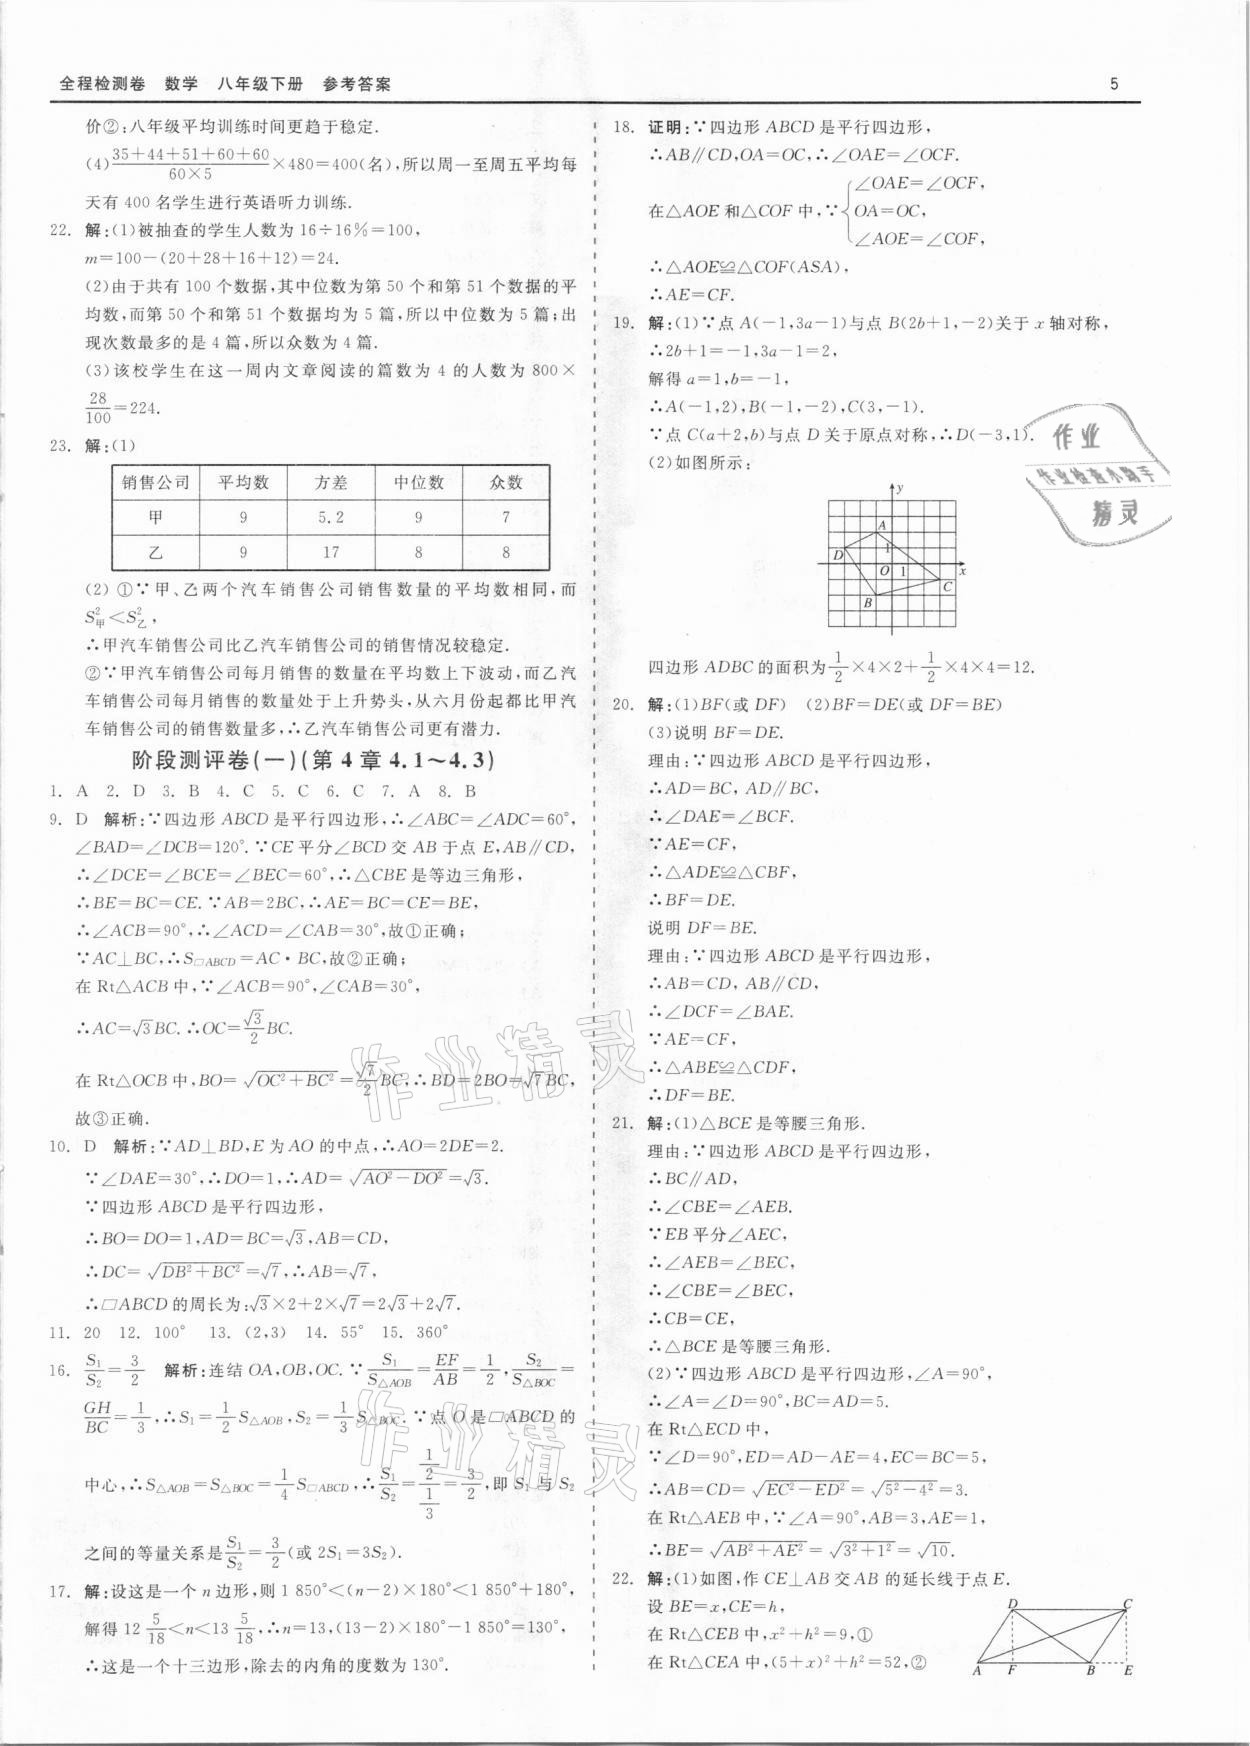 全程检测卷 数学 八年级下册 参考答案
5
价②:八年级平均训练时间更趋于稳定.
(4)(35+44+51+60+60)/(60×5)×480=400(名),所以周一至周五平均每
天有400名学生进行英语听力训练.
22. 解:(1)被抽查的学生人数为16÷16%=100,
m=100-(20+28+16+12)=24.
(2)由于共有100个数据,其中位数为第50个和第51个数据的平
均数,而第50个和第51个数据均为5篇,所以中位数为5篇;出
现次数最多的是4篇,所以众数为4篇.
(3)该校学生在这一周内文章阅读的篇数为4的人数为800×
28/100=224.
23. 解:(1)
销售公司 平均数 方差 中位数 众数
甲 9 5.2 9 7
乙 9 17 8 8
(2) ①∵甲、乙两个汽车销售公司销售数量的平均数相同,而
S²甲<S²乙,
∴甲汽车销售公司比乙汽车销售公司的销售情况较稳定.
②∵甲汽车销售公司每月销售的数量在平均数上下波动,而乙汽
车销售公司每月销售的数量处于上升势头,从六月份起都比甲汽
车销售公司的销售数量多,∴乙汽车销售公司更有潜力.
阶段测评卷(一)(第4章4.1~4.3)
1. A 2. D 3. B 4. C 5. C 6. C 7. A 8. B
9. D 解析:∵四边形ABCD是平行四边形,∴∠ABC=∠ADC=60°,
∠BAD=∠DCB=120°.∵CE平分∠BCD交AB于点E,AB∥CD,
∴∠DCE=∠BCE=∠BEC=60°,∴△CBE是等边三角形,
∴BE=BC=CE.∵AB=2BC,∴AE=BC=CE=BE,
∴∠ACB=90°,∴∠ACD=∠CAB=30°,故①正确;
∵AC⊥BC,∴S▱ABCD=AC·BC,故②正确;
在Rt△ACB中,∵∠ACB=90°,∠CAB=30°,
∴AC=√3BC.∴OC=√3/2BC.
在Rt△OCB中,BO=√(OC²+BC²)=√7/2BC,∴BD=2BO=√7BC,
故③正确.
10. D 解析:∵AD⊥BD,E为AO的中点,∴AO=2DE=2.
∵∠DAE=30°,∴DO=1,∴AD=√(AO²-DO²)=√3.
∵四边形ABCD是平行四边形,
∴BO=DO=1,AD=BC=√3,AB=CD,
∴DC=√(DB²+BC²)=√7,∴AB=√7,
∴▱ABCD的周长为:√3×2+2×√7=2√3+2√7.
11. 20 12. 100° 13. (2,3) 14. 55° 15. 360°
16. S₁/S₂=3/2 解析:连结OA,OB,OC.∵S₁/S△AOB=EF/AB=1/2,S₂/S△BOC=
GH/BC=1/3,∴S₁=1/2S△AOB,S₂=1/3S△BOC.∵点O是▱ABCD的
中心,∴S△AOB=S△BOC=1/4S▱ABCD,∴S₁/S₂=(1/2)/(1/3)=3/2,即S₁与S₂
之间的等量关系是S₁/S₂=3/2(或2S₁=3S₂).
17. 解:设这是一个n边形,则1 850°<(n-2)×180°<1 850°+180°,
解得12 5/18<n<13 5/18,∴n=13,(13-2)×180°-1 850°=130°,
∴这是一个十三边形,除去的内角的度数为130°.
18. 证明:∵四边形ABCD是平行四边形,
∴AB∥CD,OA=OC,∴∠OAE=∠OCF.
在△AOE和△COF中,∵{∠OAE=∠OCF,
OA=OC,
∠AOE=∠COF,
∴△AOE≌△COF(ASA),
∴AE=CF.
19. 解:(1)∵点A(-1,3a-1)与点B(2b+1,-2)关于x轴对称,
∴2b+1=-1,3a-1=2,
解得a=1,b=-1,
∴A(-1,2),B(-1,-2),C(3,-1).
∵点C(a+2,b)与点D关于原点对称,∴D(-3,1).
(2)如图所示:
y
A
D
1
O 1 x
C
B
四边形ADBC的面积为1/2×4×2+1/2×4×4=12.
20. 解:(1)BF(或DF) (2)BF=DE(或DF=BE)
(3)说明BF=DE.
理由:∵四边形ABCD是平行四边形,
∴AD=BC, AD∥BC,
∴∠DAE=∠BCF.
∵AE=CF,
∴△ADE≌△CBF,
∴BF=DE.
说明DF=BE.
理由:∵四边形ABCD是平行四边形,
∴AB=CD, AB∥CD,
∴∠DCF=∠BAE.
∵AE=CF,
∴△ABE≌△CDF,
∴DF=BE.
21. 解:(1)△BCE是等腰三角形.
理由:∵四边形ABCD是平行四边形,
∴BC∥AD,
∴∠CBE=∠AEB.
∵EB平分∠AEC,
∴∠AEB=∠BEC,
∴∠CBE=∠BEC,
∴CB=CE,
∴△BCE是等腰三角形.
(2)∵四边形ABCD是平行四边形,∠A=90°,
∴∠A=∠D=90°,BC=AD=5.
在Rt△ECD中,
∵∠D=90°,ED=AD-AE=4,EC=BC=5,
∴AB=CD=√(EC²-ED²)=√(5²-4²)=3.
在Rt△AEB中,∵∠A=90°,AB=3,AE=1,
∴BE=√(AB²+AE²)=√(3²+1²)=√10.
22. 解:(1)如图,作CE⊥AB交AB的延长线于点E.
设BE=x,CE=h,
在Rt△CEB中,x²+h²=9,①
在Rt△CEA中,(5+x)²+h²=52,②
D C
A F B E
作业
作业检查小助手
精灵
作业精灵
作业精灵